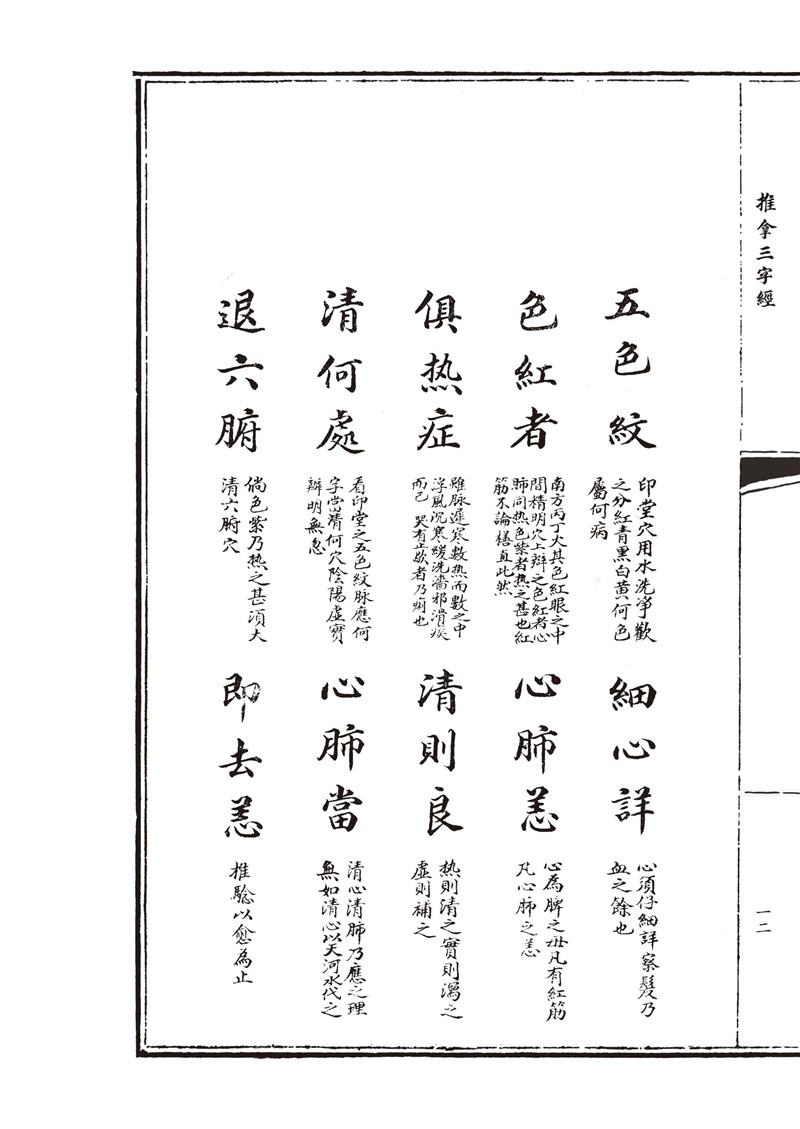 推拿三字經
五色紋
印堂穴用水洗淨歡
之分紅青黑白黃何色
屬何病
細心詳
心須仔細詳察髮乃
血之餘也
色紅者
南方丙丁火其色紅眼之中
間精明穴上辯之色紅者心
肺同热色紫者热之甚也紅
筋不論橫直此然
心肺恙
心為脾之母凡有紅筋
凡心肺之恙
俱热症
雖脉遲寒數热而數之中
浮風沉寒緩洗嗇邪滑痰
而已 哭有止歇者乃痢也
清則良
热則清之實則瀉之
虛則補之
清何處
看印堂之五色紋脉應何
字當清何穴陰陽虛實
辨明無忽
心肺當
清心清肺乃應之理
無如清心以天河水代之
退六腑
倘色紫乃热之甚須大
清六腑穴
即去恙
推驗以愈為止
一二